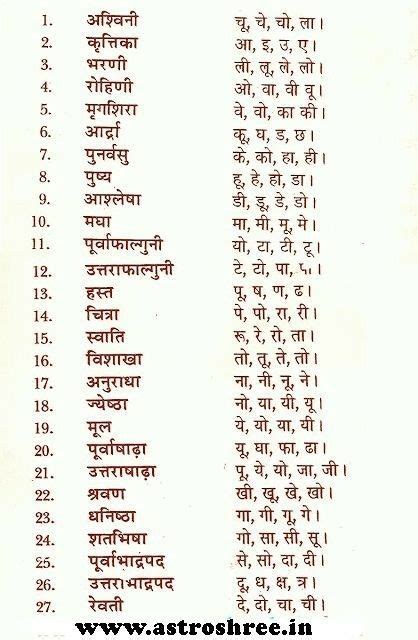 1. अश्विनी चू, चे, चो, ला।
2. कृत्तिका आ, इ, उ, ए।
3. भरणी ली, लू, ले, लो।
4. रोहिणी ओ, वा, वी वू।
5. मृगशिरा वे, वो, का की।
6. आर्द्रा कू, घ, ड, छ।
7. पुनर्वसु के, को, हा, ही।
8. पुष्य हू, हे, हो, डा।
9. आश्लेषा डी, डू, डे, डो।
10. मघा मा, मी, मू, मे।
11. पूर्वाफाल्गुनी यो, टा, टी, टू।
12. उत्तराफाल्गुनी टे, टो, पा,
13. हस्त पू, ष, ण, ढ।
14. चित्रा पे, पो, रा, री।
15. स्वाति रू, रे, रो, ता।
16. विशाखा तो, तू, ते, तो।
17. अनुराधा ना, नी, नू, ने।
18. ज्येष्ठा नो, या, यी, यू।
19. मूल ये, यो, या, यी।
20. पूर्वाषाढ़ा यू, घा, फा, ढा।
21. उत्तराषाढ़ा पू, ये, यो, जा, जी।
22. श्रवण खी, खू, खे, खो।
23. धनिष्ठा गा, गी, गू, गे।
24. शतभिषा गो, सा, सी, सू।
25. पूर्वाभाद्रपद से, सो, दा, दी।
26. उत्तराभाद्रपद दू, ध, क्ष, त्र।
27. रेवती दे, दो, चा, ची।
www.astroshree.in